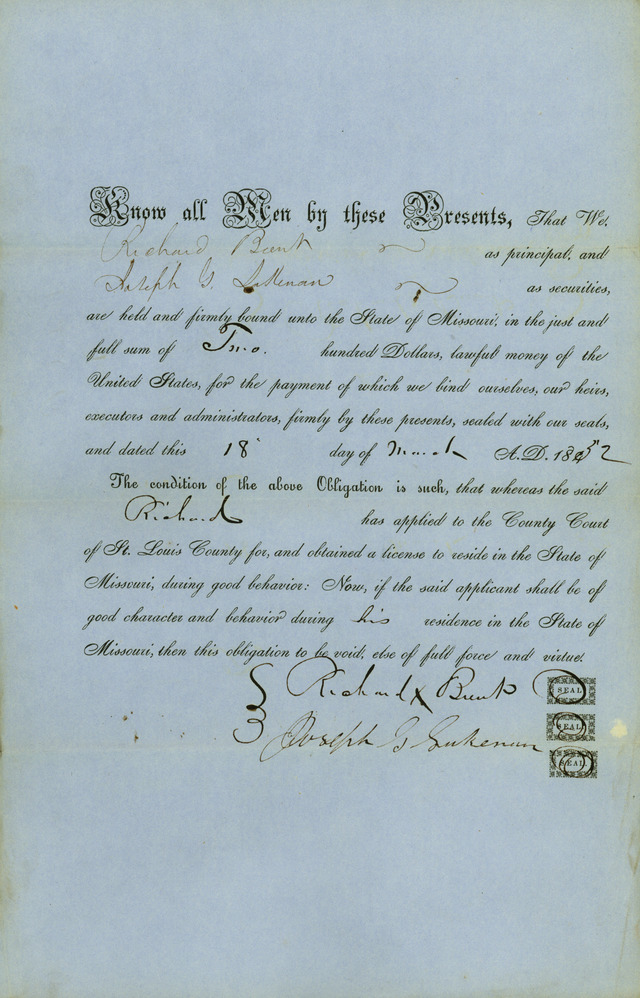 Know all Men by these Presents, That We,
Richard as principal, and
Joseph G. as securities,
are held and firmly bound unto the State of Missouri, in the just and
full sum of Two hundred Dollars, lawful money of the
United States, for the payment of which we bind ourselves, our heirs,
executors and administrators, firmly by these presents, sealed with our seals,
and dated this 18 day of March A.D. 1852
The condition of the above Obligation is such, that whereas the said
Richard has applied to the County Court
of St. Louis County for, and obtained a license to reside in the State of
Missouri, during good behavior: Now, if the said applicant shall be of
good character and behavior during his residence in the State of
Missouri, then this obligation to be void, else of full force and virtue.
Richard X SEAL
Joseph G SEAL
SEAL